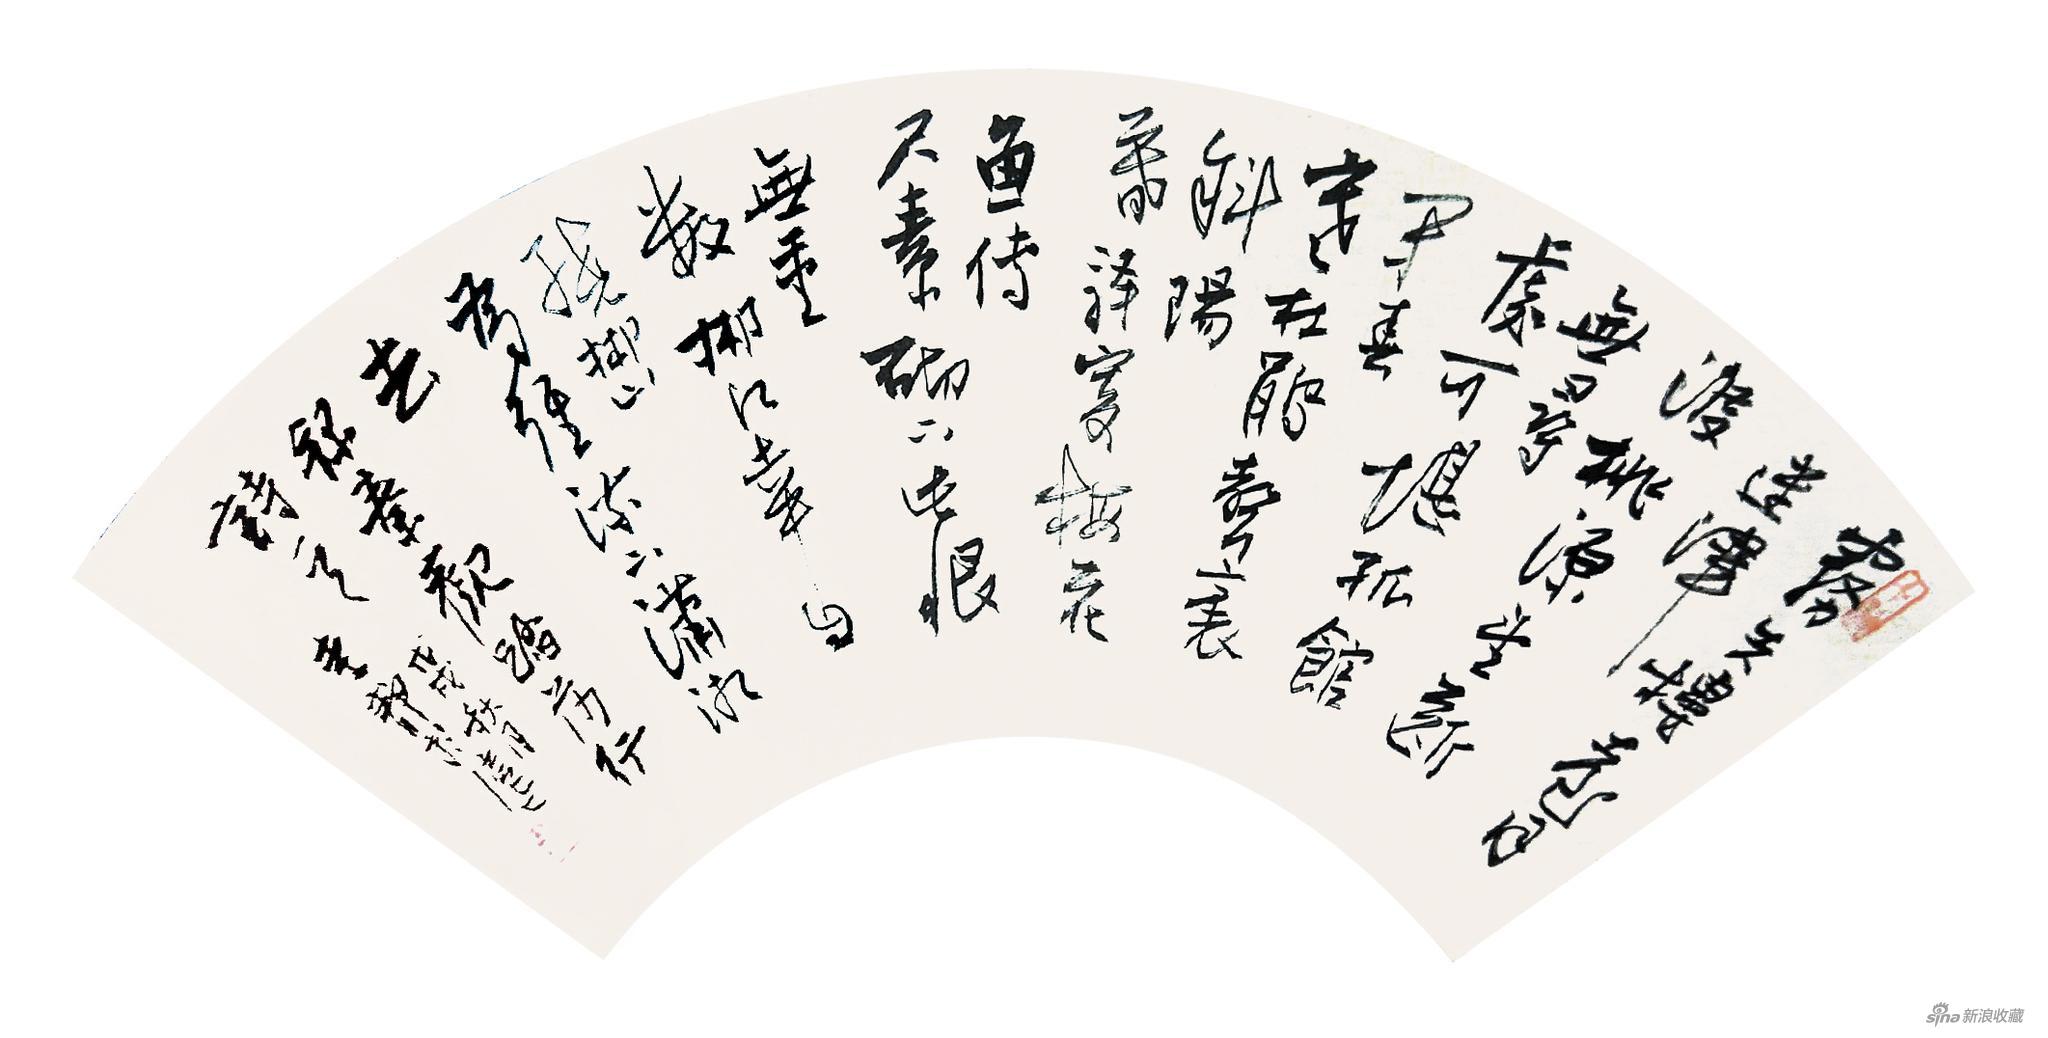 霧失樓台月
迷津
渡桃源望斷
無尋
處可堪孤館
閉春
寒杜鵑聲裏
斜陽
暮驛寄梅花
魚傳
尺素砌成此恨
無重
數郴江幸自
繞郴山
為誰流下瀟湘
去
錄秦觀踏莎行
詩之
戊戌秋月
新浪收藏
sina